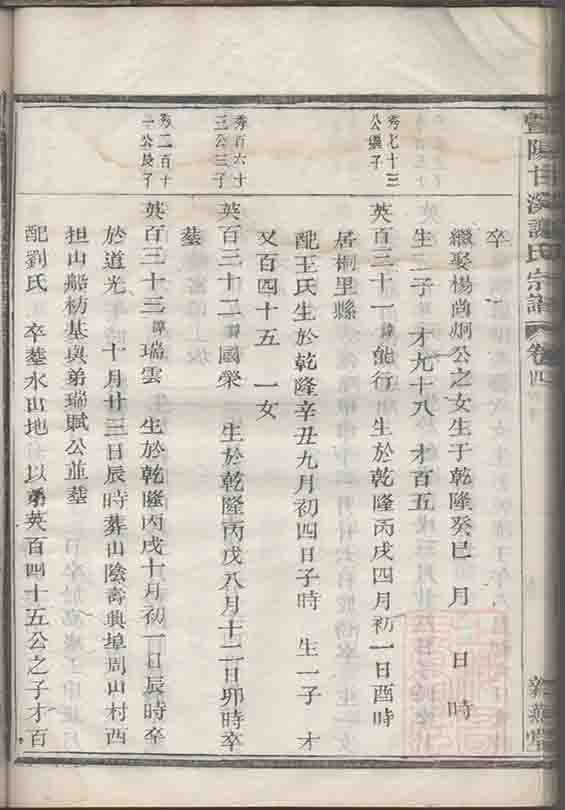 暨陽甘溪 氏宗譜 卷四
卒
繼娶楊尚炯公之女生于乾隆癸巳 月 日 時
生二子 才九十八 才百五
秀七十三
公 子
英百三十一諱能行 生於乾隆丙戌四月初一日酉時
居桐里縣
配王氏生於乾隆辛丑九月初四日子時 生一子 才
又百四十五 一女
秀百六十
三公三子
英百三十二諱國榮 生於乾隆丙戌八月十二日卯時卒
葬
秀二百十
一公長子
英百三十三諱瑞雲 生於乾隆丙戌十月初一日辰時卒
於道光 年 十月廿三日辰時葬山陰壽興埠周山村西
担山船枋基與弟瑞賦公並葬
配劉氏 卒葬水出地 以弟英百四十五公之子才百